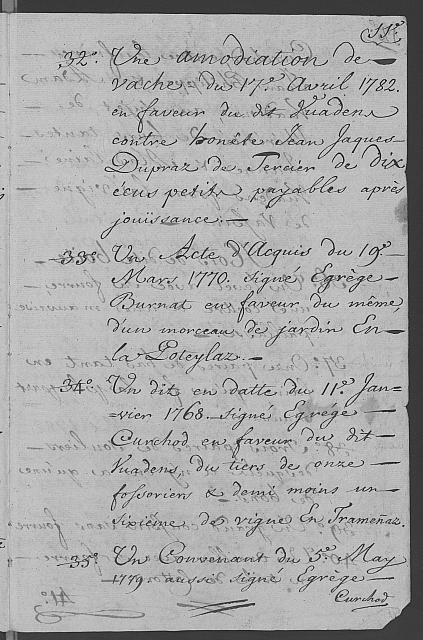 11.e
32.o Une amodiation de
vache, du 17.e Avril 1782.
en faveur du dit Vuadens
contre honête Jean Jaques
Dupraz de Tercier de dix
écus petits payables après
jouïssance. —
33.o Un Acte d'Acquis du 19.e
Mars 1770. signé Egrège
Burnat en faveur du même,
d'un morceau de jardin En
la Poteylaz. —
34.o Un dit en datte du 11.e Jan-
=vier 1768. signé Egrége
Curchod en faveur du dit
Vuadens, du tiers de onze
fossoriers & demi moins un
sixiême de vigne En Trameñaz.
35.o Un Convenant du 5.e May
1779 aussi signé Egrège
Curchod